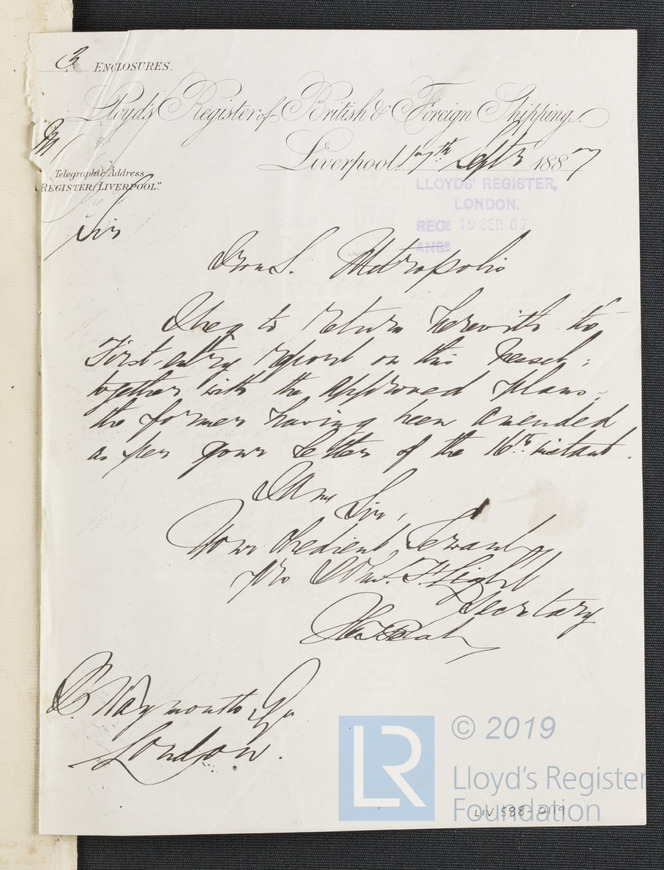 3 ENCLOSURES.
Lloyd's Register of British & Foreign Shipping.
Liverpool, 17th Septr 1887
Telegraphic Address
"REGISTER, LIVERPOOL."
LLOYDS' REGISTER,
LONDON.
RECD 19 SEP. 87
ANSD
Sir
Metropolis
I beg to return herewith the
First entry report on this Vessel;
together with the approved plans,
the former having been amended
as per your letter of the 16th instant.
I am
Sir,
Your obedient Servant
pro Light
Secretary
B. Waymouth Esqr
London.
© 2019
LR
Lloyd's Register
Foundation
LIV 588-0119